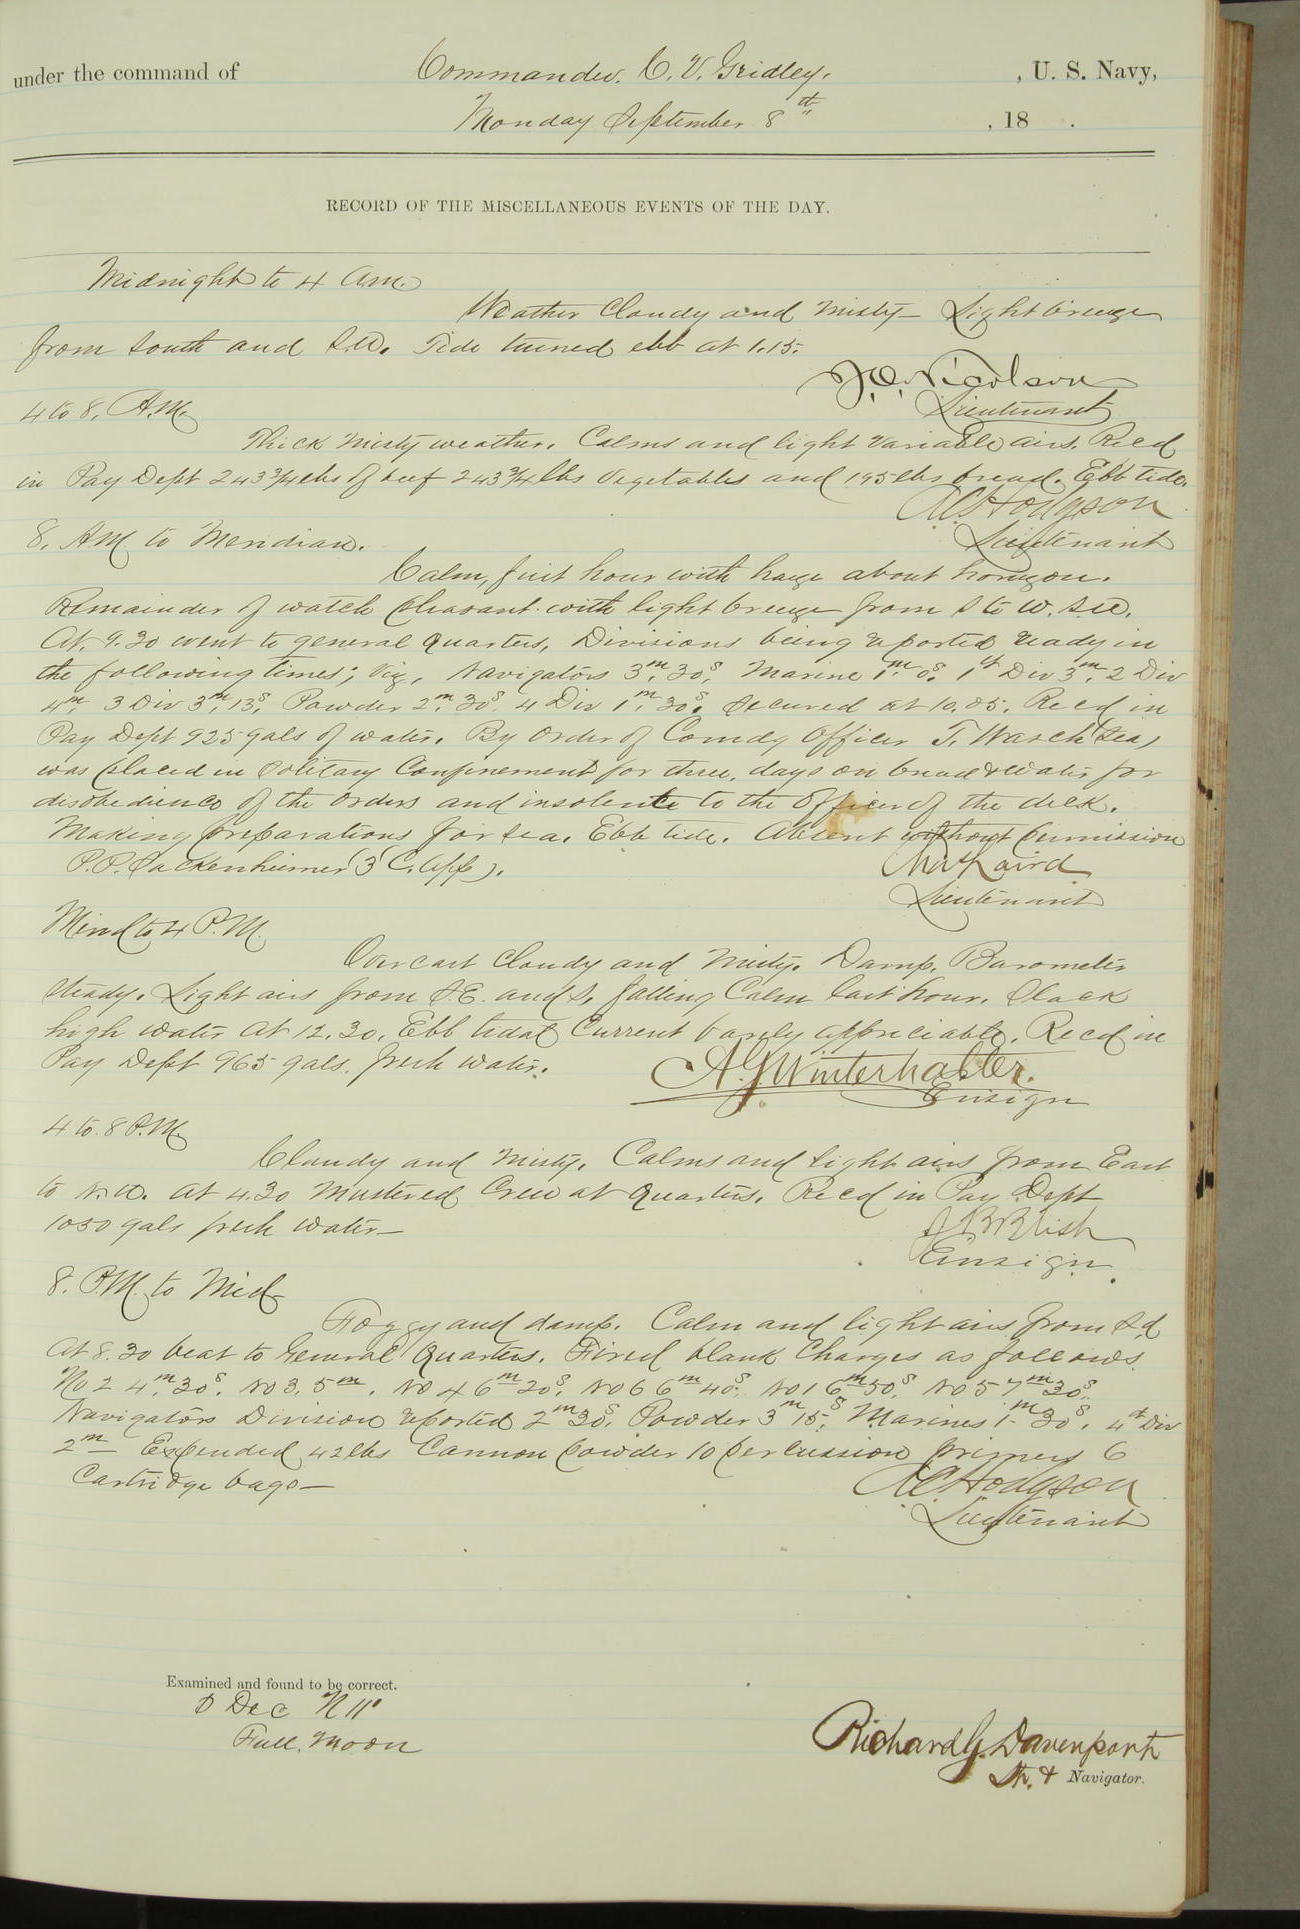 under the command of Commander. C. V. Gridley. , U. S. Navy,
Monday September 8th , 18 .
RECORD OF THE MISCELLANEOUS EVENTS OF THE DAY.
Midnight to 4 Am.
Weather Cloudy and Misty— Light breeze
from South and S.W. Tide turned ebb at 1.15.
Nicolson
Lieutenant
4 to 8. A.M.
Thick Misty weather. Calms and light variable airs. Recd
in Pay Dept 243 3/4 lbs of beef 243 3/4 lbs Vegetables and 195 lbs bread. Ebb tide.
A.C. Hodgson
Lieutenant
8. AM to Meridian.
Calm, first hour with haze about horizon.
Remainder of watch pleasant with light breeze from S to W.S.W.
At 9.30 went to general Quarters, Divisions being reported ready in
the following times; Viz, Navigators 3m. 30s. Marine 1m. 0s. 1st Div 3m. 2 Div
4m. 3 Div 3m. 13s. Powder 2m. 30s. 4 Div 1m. 30s. Secured at 10.05. Recd in
Pay Dept 925 gals of water. By Order of Comdg Officer T. Warch (Sea)
was placed in Solitary Confinement for three, days on bread & water for
disobedience of the orders and insolence to the Officer of the deck.
Making preparations for sea. Ebb tide. Absent without permission
P.P. Packenheimer (3 C. App).
Chas Laird
Lieutenant
Merid to 4 P.M.
Overcast Cloudy and Misty. Damp. Barometer
steady. Light airs from S.E. and S. falling Calm last hour. Slack
high water at 12.30. Ebb tidal Current barely appreciable. Recd in
Pay Dept 965 gals. fresh water.
A.G. Winterhalter.
Ensign
4 to 8 P.M.
Cloudy and Misty. Calms and light airs from East
to N.W. At 4.30 Mustered Crew at Quarters. Recd in Pay Dept
1050 gals fresh water—
J B Blish
Ensign.
8. P.M. to Mid—
Foggy and damp. Calm and light airs from Sd
At 8.30 beat to General Quarters. Fired blank Charges as follows.
No 2 4m. 30s. No 3. 5m. No 4 6m 20s. No 6 6m 40s. No 1 6m 50s. No 5 7m 30s.
Navigators Division reported 2m 30s. Powder 3m 15s. Marines 1m 30s. 4th Div
2m Expended 42 lbs Cannon powder 10 percussion primers 6
Cartridge bags—
A.C. Hodgson
Lieutenant
Examined and found to be correct.
Dec N 11°
Full. Moon
Richard G. Davenport
Lt. & Navigator.